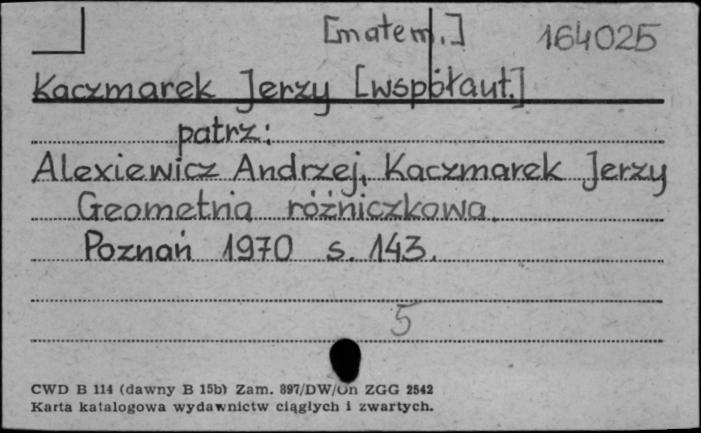 [matem.] 164025
Kaczmarek Jerzy [współaut.]
patrz:
Alexiewicz Andrzej, Kaczmarek Jerzy
Geometria różniczkowa.
Poznań 1970 s. 143.
5
CWD B 114 (dawny B 15b) Zam. 897/DW/Un ZGG 2542
Karta katalogowa wydawnictw ciągłych i zwartych.